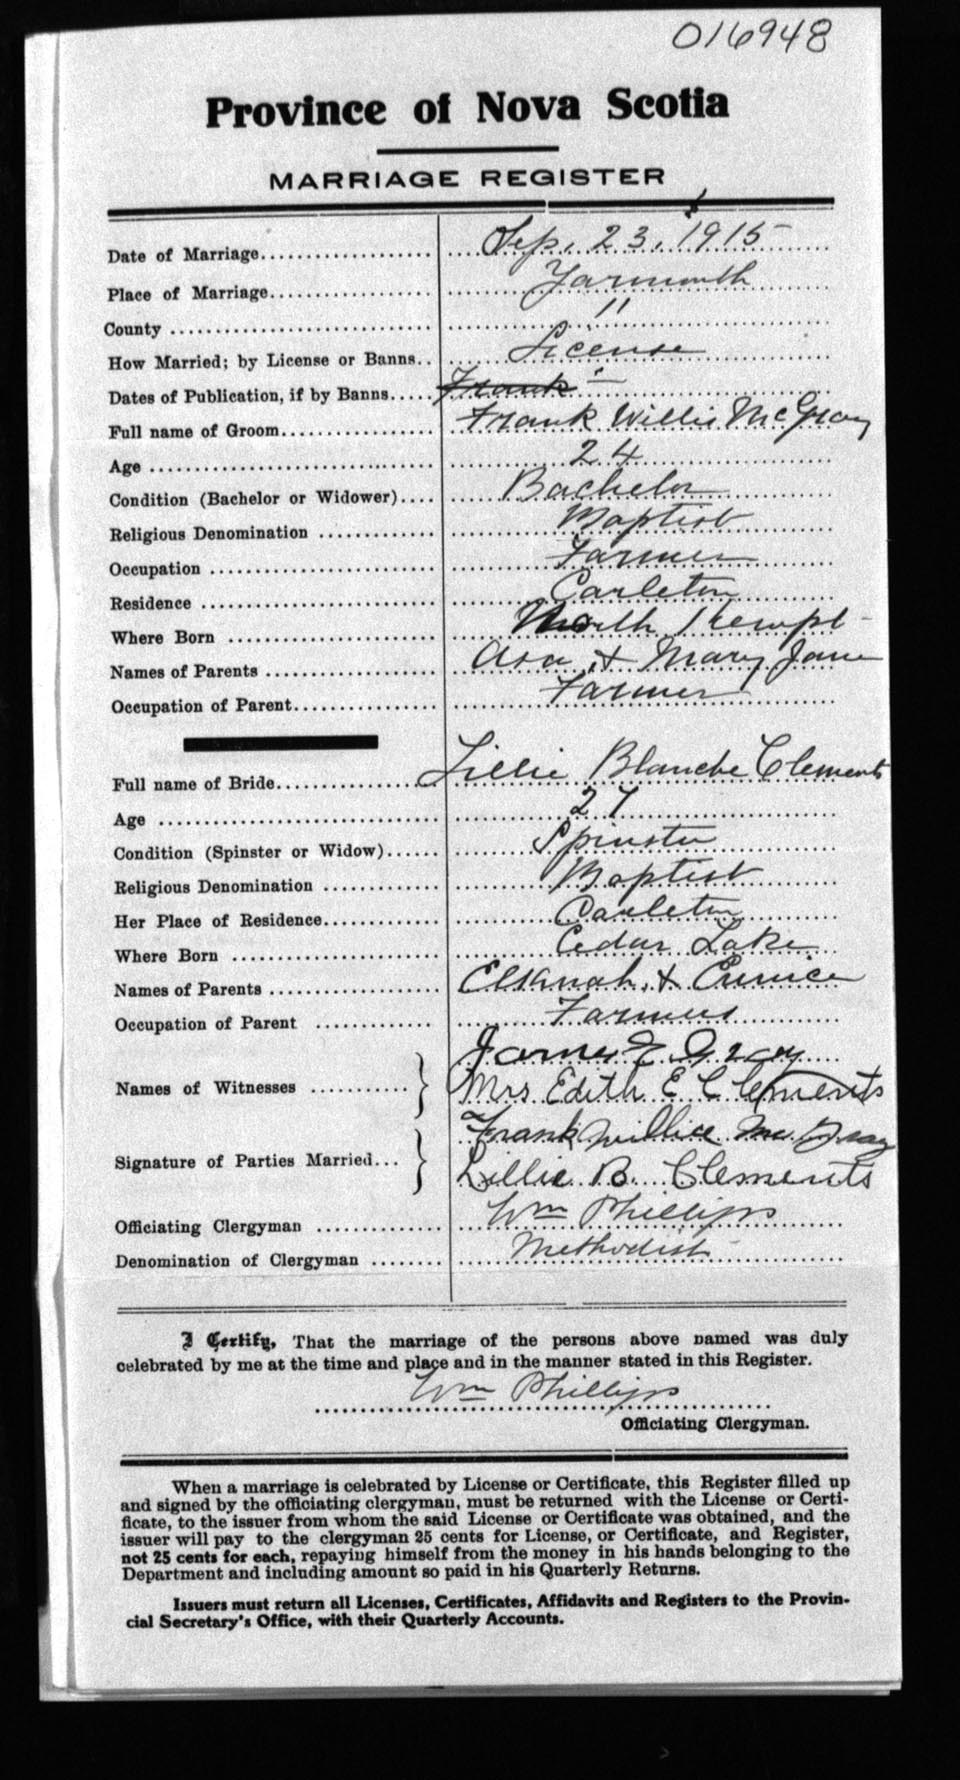 016948
Province of Nova Scotia
MARRIAGE REGISTER
Date of Marriage.................... Sep. 23, 1915
Place of Marriage................... Yarmouth
County ............................. "
How Married; by License or Banns.. License
Dates of Publication, if by Banns..... Frank "—
Full name of Groom.................. Frank Willis McGray
Age ................................ 24
Condition (Bachelor or Widower).... Bachelor
Religious Denomination ............. Baptist
Occupation ......................... Farmer
Residence .......................... Carleton
Where Born ......................... North Kempt
Names of Parents ................... Asa & Mary Jane
Occupation of Parent................ Farmer
Full name of Bride.................. Lillie Blanche Clements
Age ................................ 27
Condition (Spinster or Widow)...... Spinster
Religious Denomination ............. Baptist
Her Place of Residence.............. Carleton
Where Born ......................... Cedar Lake
Names of Parents ................... Elkanah & Eunice
Occupation of Parent ............... Farmer
James E Gray
Names of Witnesses ........... } Mrs Edith E Clements
Frank Willice McGray
Signature of Parties Married... } Lillie B. Clements
Officiating Clergyman .............. Wm Phillips
Denomination of Clergyman ........ Methodist
I Certify, That the marriage of the persons above named was duly
celebrated by me at the time and place and in the manner stated in this Register.
Wm Phillips
Officiating Clergyman.
When a marriage is celebrated by License or Certificate, this Register filled up
and signed by the officiating clergyman, must be returned with the License or Certi-
ficate, to the issuer from whom the said License or Certificate was obtained, and the
issuer will pay to the clergyman 25 cents for License, or Certificate, and Register,
not 25 cents for each, repaying himself from the money in his hands belonging to the
Department and including amount so paid in his Quarterly Returns.
Issuers must return all Licenses, Certificates, Affidavits and Registers to the Provin-
cial Secretary's Office, with their Quarterly Accounts.